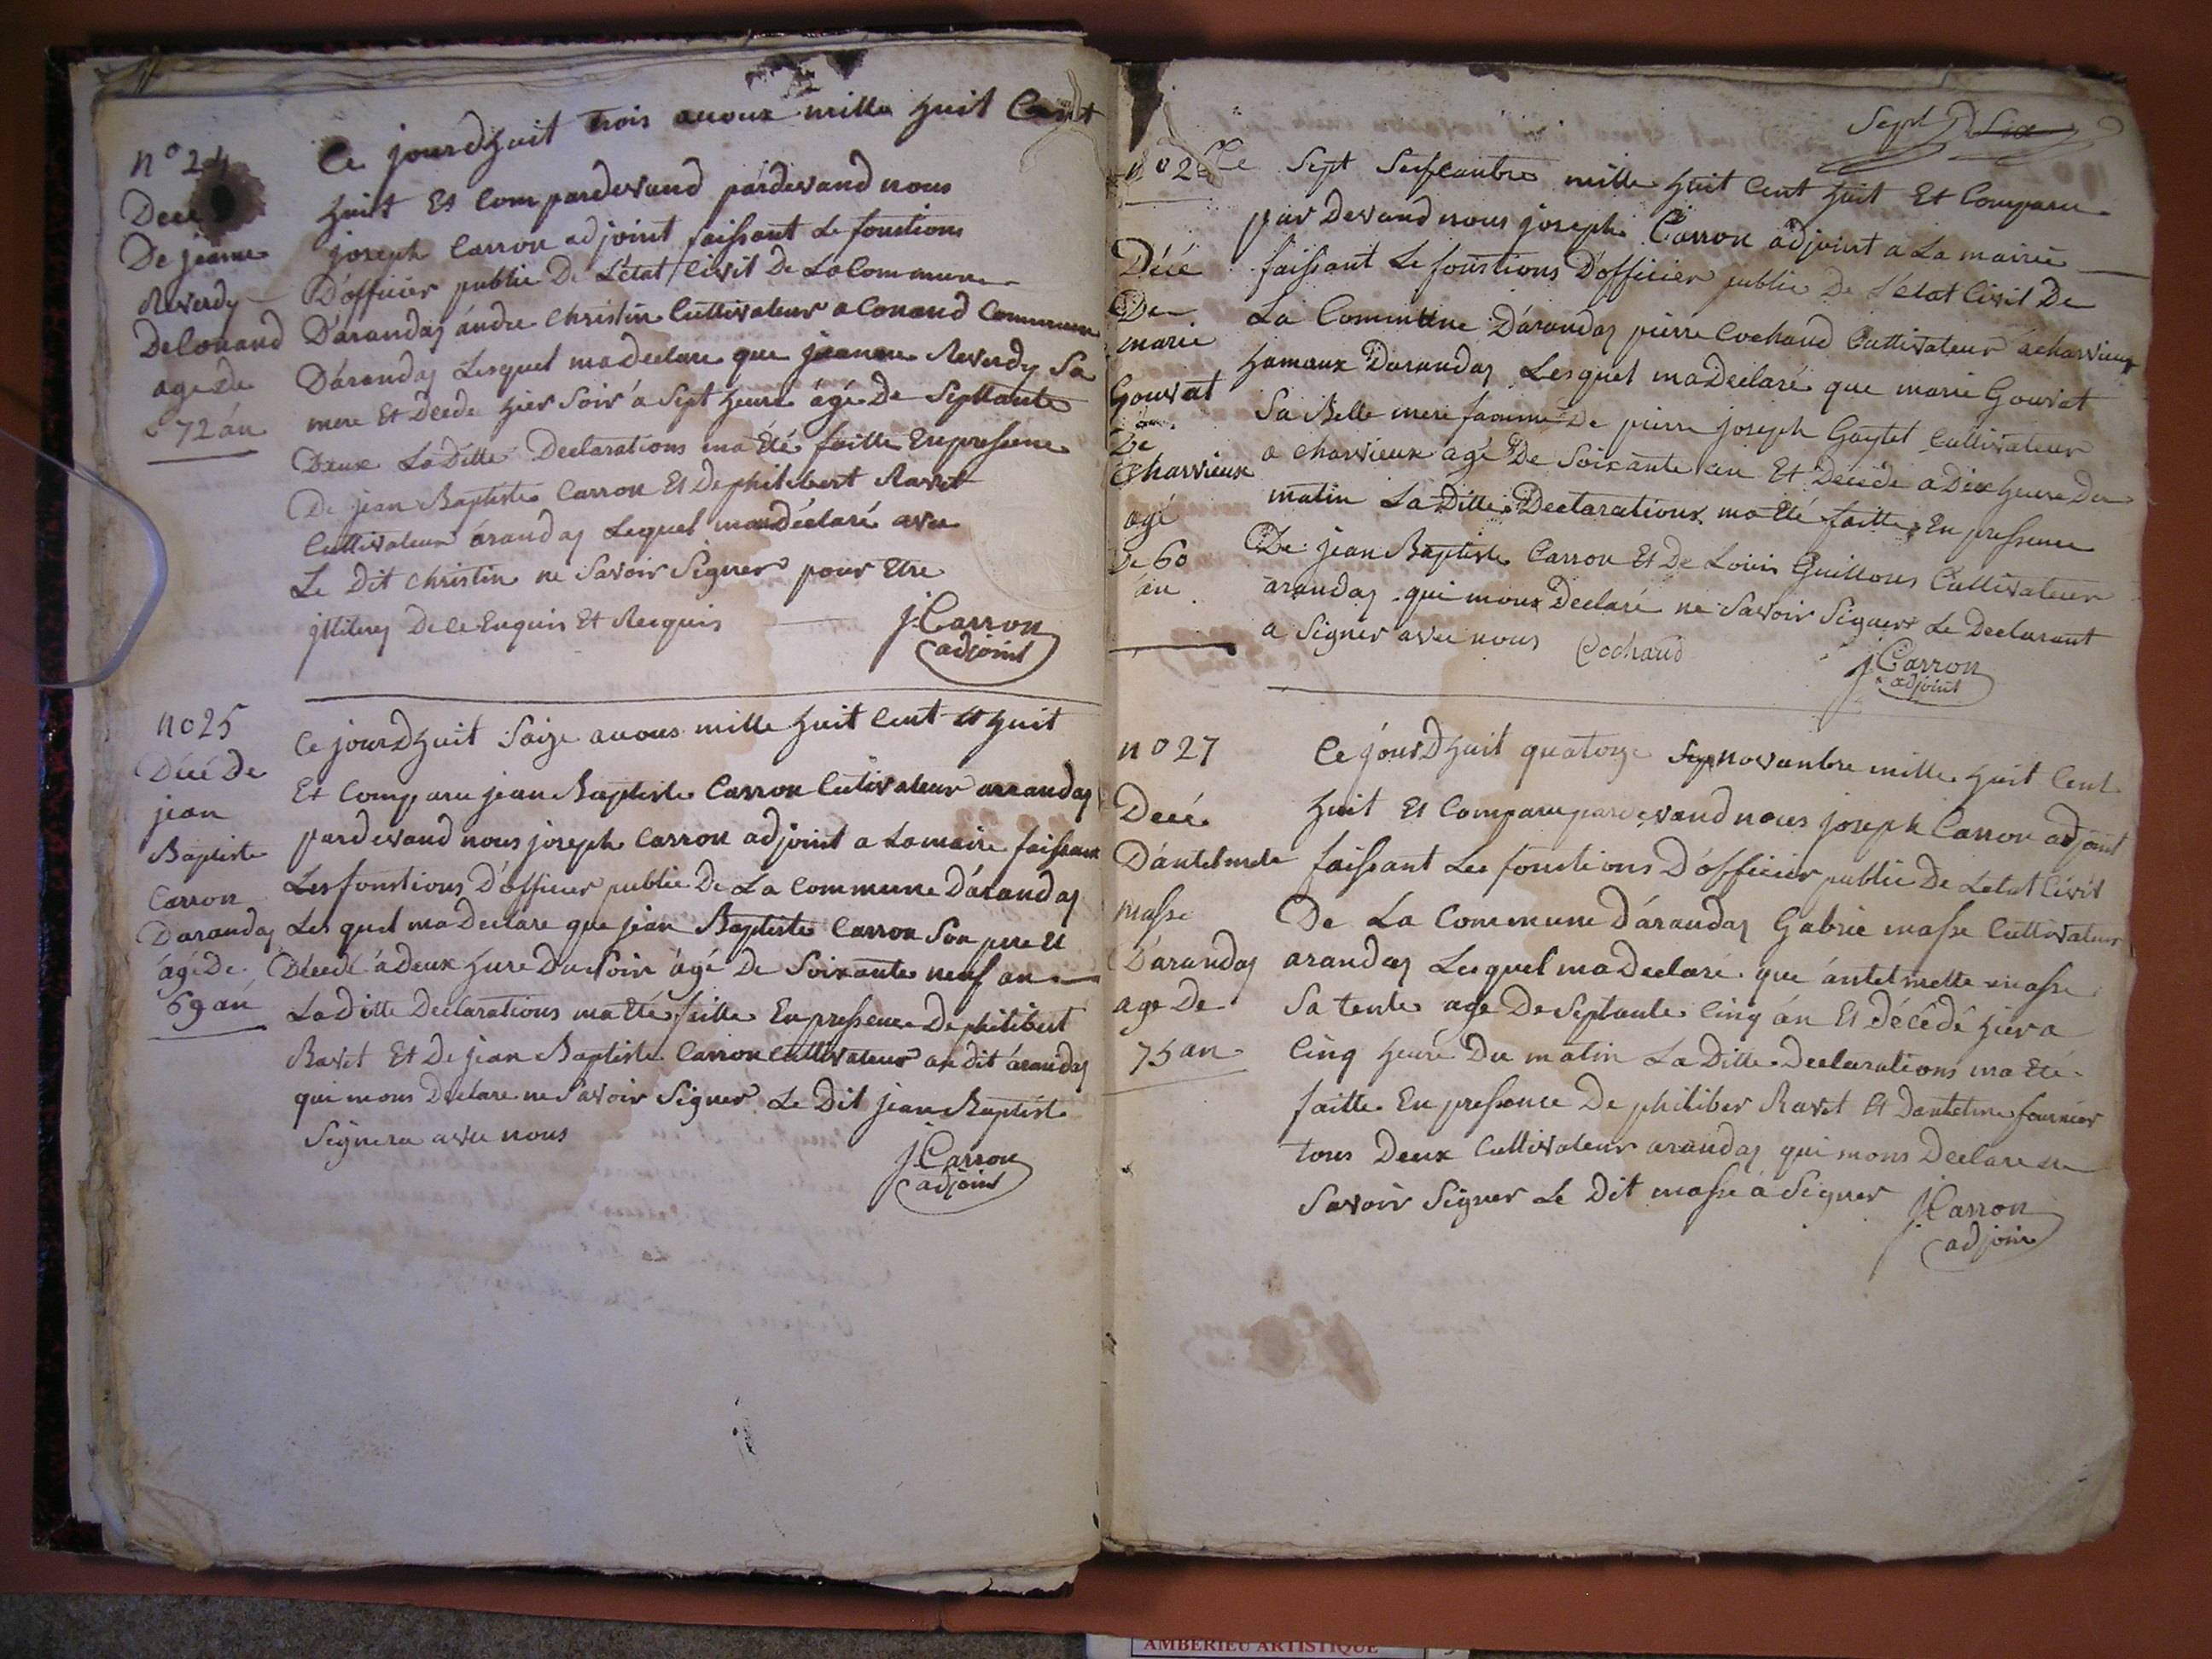 n° 24
Décé
De jeanne
Reverdy
De Conand
age de
72 án
Ce jourdhuit trois auoux mille huit Cent
huit Et Com pardevand párdevand nous
joseph Carron adjoint faissant Le fonctions
D'officier public De L'état Civil De La Commune
D'arandas ándre Christin Cultivateur a Conand Commune
D'arandas Lesquel ma declare que jeanne Reverdy Sa
mere Et décede hier Soir á Sept heure ágé De Septtante
Deux La Ditte Declarations ma Été faitte En pressence
De jean Baptiste Carron Et De philibert Ravet
Cultivateur árandas Lequel mon déclaré avec
Le Dit Christin ne Savoir Signer pour Etre
De ce Enquis Et Requis
j. Carron
adjoint
no 25
Décé De
jean
Baptiste
Carron
Darandas
ágé De
69 an
Ce jourdhuit Saize auous mille huit Cent et huit
Et Comparu jean Baptiste Carron Cultivateur arrandas
pardevand nous joseph Carron adjoint a La maire faissant
Les fonctions D'officier public De La Commune D'árandas
Lesquel ma Declare que jean Baptiste Carron Son pere Et
Décedé á Deux hure Du Soir ágé De Soixante neuf an
La Ditte Declarations ma Été faitte En pressence De philibert
Ravet Et De jean Baptiste Carron Cultivateur au dit árandas
qui mons Declare ne Savoir Signer Le Dit jean Baptiste
Signera avec nous
j. Carron
adjoint
Sept Six
n° 26
Décé
De
marie
Gouvat
De
Charvieux
agé
De 60
án
Ce Sept Septeanbre mille huit Cent huit Et Comparu
par Devand nous joseph Carron adjoint a La mairie
faissant Le fonctions D'officier public De L'état Civil De
La Commune D'arandas pierre Cochaud Cultivateur á charvieux
hamaux Darandas Lesquel ma Déclaré que marie Gouvat
Sa Belle mere faamme De pierre joseph Gaytet Cultivateur
a charvieux agé De Soixante an Et Décédé a Dix heure Du
matin La Ditte Declarations ma Été faitte En pressence
De jean Baptiste Carron Et De Louis Guillons Cultivateur
arandas qui mons Declaré ne Savoir Signer Le Declarant
a Signer avec nous Cochaud
j. Carron
adjoint
n° 27
Décé
D'antelmete
masse
D'arandas
age De
75 an
Ce jourdhuit quatorze Sep novanbre mille huit Cent
huit Et Comparu pardevand nous joseph Carron adjoint
faissant Les fonctions D'officier public De Letat Civil
De La Commune D'árandas Gabrie masse Cultivateur
arandas Lesquel ma Declaré que ántelmette masse
Sa tente age De Septante Cinq án Et Décédé hier a
Cinq heure Du matin La Ditte Declarations ma Été
faitte En pressence De philiber Ravet Et Dantelme fournier
tous Deux Cultivateur arandas qui mons Declare ne
Savoir Signer Le Dit masse a Signer
j. Carron
adjoin
AMBERIEU ARTISTIQUE